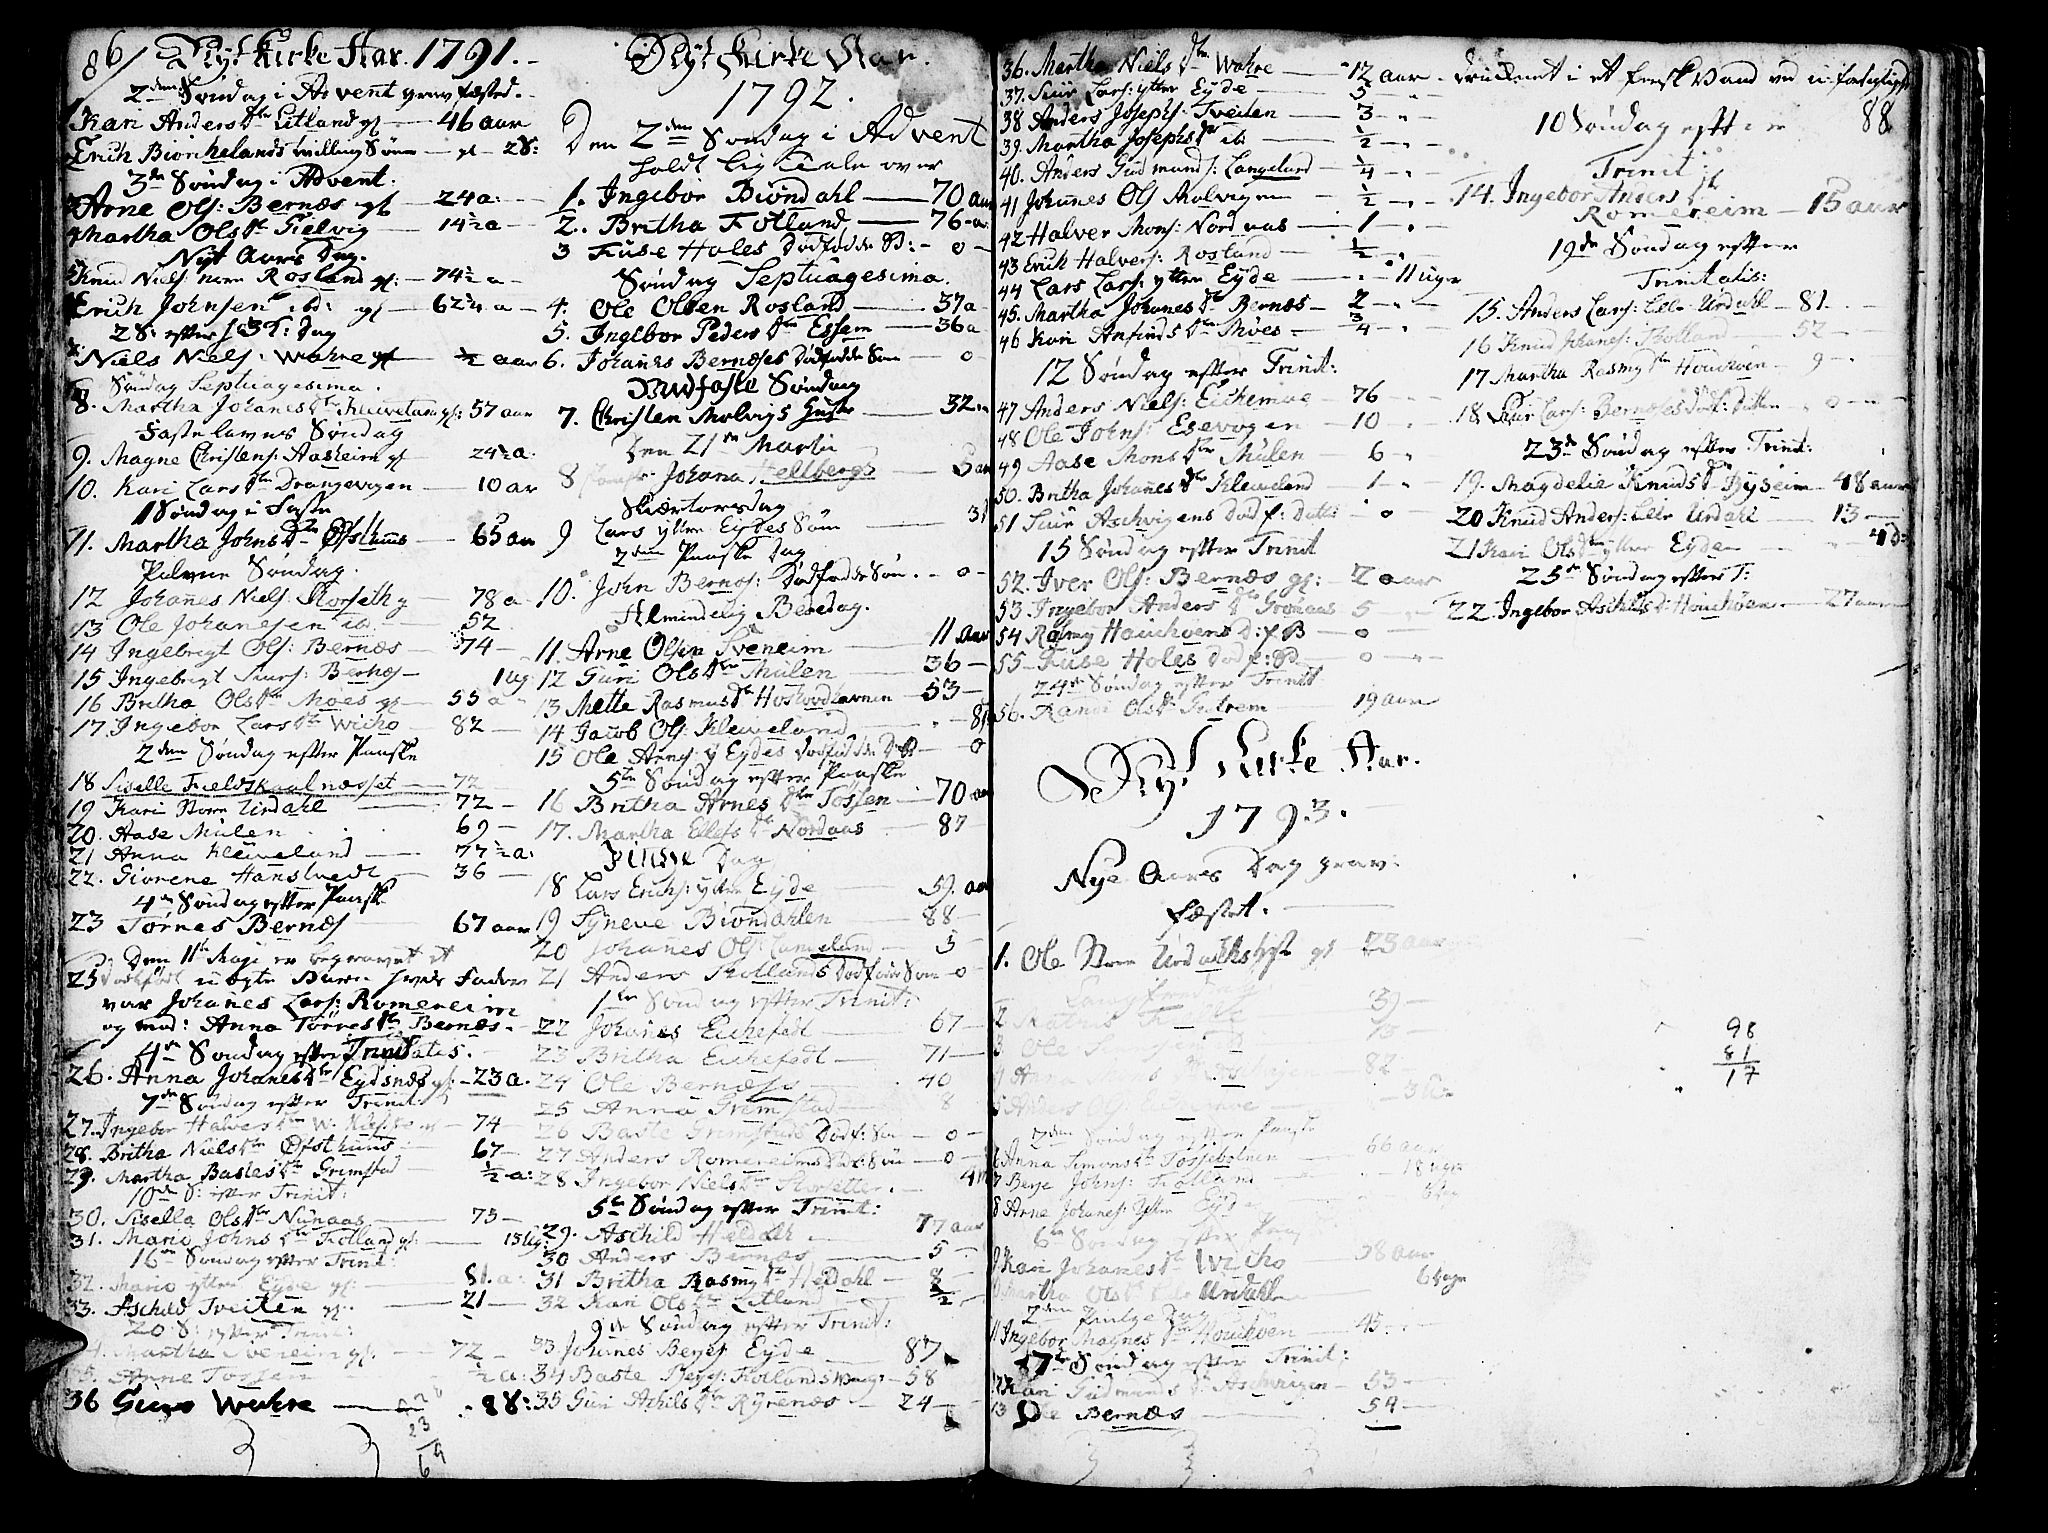 86/ Nyt Kirke Aar. 1791.
2den Søndag i Advent grav fæsted.
1. Kari Anders Dtr Litland gf — 46 aar
Erich Biørnhelands tvilling Søn — gf — 28:
3de Søndag i Advent:
Arne Ols: Bernæs gf — 24 a:
4 Martha Ols Dtr Gielvig — 14½ a
Nyt Aars Dag.
Knud Niels: nore Rosland gf: — 74½ a
Erich Johnsen ibd: gf — 62¼ a
28: efter
Niels Niels: Wahre gf — ½ aar
Søndag Septuagesima.
8. Martha Johanes Dtr Kleuveland gf: 57 aar
Fastelavns Søndag
9. Magne Christens: Aasheim gf — 24½ a:
10. Kari Lars Dtr Drangevogen — 10 ar
1 Søndag i Faste
11. Martha Johns Dtr Øfsthuus — 65 aar
Palme Søndag.
12 Johanes Niels: Storseth g — 78 a
13 Ole Johansen ib. — 52
14 Ingebrigt Ols: Bernæs — 74 —
15 Ingebrigt Siurs: Bernæs — 1 ug:
16 Britha Ols Dtr Moes gf — 55 a
17 Ingebor Lars Dtr Wicho — 82 —
2den Søndag efter Paaske
18 Siselle Fieldskaalnæsset — 72 —
19 Kari Store Urdahl — 72 —
20. Aase Mülen — 69 —
21 Anna Kleuveland — 77½ a:
22. Giorene Hanstvedt — 36 —
4de Søndag efter Paaske
23 Tørnes Bernæs — 67 aar
Den 11te Maji er begravet et
25 Dødfødt uægte Barn hvis Fader
var Johanes Lars: Romereim
og mod: Anna Tørres Dtr Bernæs.
4de Søndag efter Trinitatis.
26. Anna Johanes Dtr Eydsnæs gf: — 23 a.
7de Søndag efter Trinit:
27. Ingebor Halvers Dtr W: — 74 —
28. Britha Niels Dtr Øfsthuus — 67 —
29. Martha Bastes Dtr Grimstad — ½ a:
10de S: efter Trinit:
30. Sisella Ols Dtr Nünaas — 75 —
31. Mario Johns Dtr Fotland gf: — 15 ug:
16de Søndag efter Trinit:
32. Mario yttre Eyde gf: — 81. a:
33. Aschild Tveiten gf: — 21 —
20 S: efter Trinit:
34. Martha Sveneim gf: — 72 —
35. Arne Tossen — ½ a:
36 Giøro Wahre — 88:
23
69
Nyt Kirke Aar.
1792.
Den 2den Søndag i Advent
holdt Lig Tale over
1. Ingebor Biøndahl — 70 aar
2. Britha Fotland — 76 - a:
3 Fuse Holes Dødfødde B: — 0 —
Søndag Septuagesima.
4. Ole Olsen Rosland — 37 a
5. Ingebor Peders Dtr Essem — 36 a
6. Johanes Bernæses Dødfødde Søn — 0 —
Midfaste Søndag
7. Christen Molvigs Hustr — 32
Den 21de Martii
8 Jomfr: Johana Hellbergs — 5 aar
Skiærtorsdag
9 Lars yttre Eydes Søn — 3
2den Paaske Dag
10. John Bernæs: Dødfødde Søn. — 0 —
Almindelig Bededag.
11. Arne Olsen Sveneim — 11 Aar
12 Guri Ols Dtr Mülen — 36 —
13 Mette Rasmus Dtr Hoskoodlævnen — 53 —
14 Jacob Ols: Kleiveland — 8
15 Ole Arns: y Eydes Dødfødde — 0
5te Søndag efter Paaske
16 Britha Arnes Dtr Tossen — 70 aar
17. Martha Eilefs Dtr Nordaas — 87
Pintse Dag
18 Lars Erichs: yttre Eyde — 59. aar
19 Syneve Biøndahlen — 88 —
20 Johanes Ols: Langeland — 3 —
21 Anders Skotlands Dødfødde Søn — 0 —
1ste Søndag efter Trinit:
22 Johanes Eichefedt — 67 —
23 Britha Eichefedt — 71 —
24 Ole Bernæs — 40
25 Anna Grimstad — 8
26 Baste Grimstads Dødf: Søn — 0 —
27 Anders Romereims Dødf: Søn — 0 —
28 Ingebor Niels Dtr Storsette — 4
5te Søndag efter Trinit:
29. Aschild Heldahl — 77 aar
30 Anders Bernæs — 5 —
31 Britha Rasmg Dtr Heldahl — 8 —
32 Kari Ols Dtr Litland — ½
9de Søndag efter Trinit:
33 Johanes Berges Eyde — 87
34 Baste Fotlands — 58
35 Guri Aschils Dtr Rÿrenæs — 24 —
36. Martha Niels Dtr Wahre — 12 aar drucknet i et fersk Vand ved
37. Siur Lars: yttre Eyde — 5 —
38 Anders Josephs: Tveiten — 3 —
39. Martha Josephs Dtr ib: — ½ —
40. Anders Gudmunds: Langeland — ¼ —
41 Johanes Ols Molvigen — ½ —
42 Halver Mons: Nordaas — 1 —
43 Erich Halvers: Rosland — ½ —
44 Lars Lars: yttre Eyde — 11 uger
45. Martha Johanes Dtr Bernæs — 2 —
46 Kari Anfinds Dtr Moes — ¾ —
12 Søndag efter Trinit:
47 Anders Niels: Eichemoe — 76 —
48 Ole Johns: Esevogen — 10 —
49 Aase Mons Dtr Mülen — 6 —
50. Britha Johanes Dtr Kleiveland — 1 —
51 Siur Aschvigens Dødf: Datt: — 0
15 Søndag efter Trinit
52. Iver Ols: Bernæs gf: — 2 aar
53 Ingebor Anders Dtr Gronaas 5 —
54 Rasmg Houchøens D: f: B — 0 —
55. Fuse Holes Dødf: B — 0 —
24de Søndag efter Trinit
56. Randi Ols Dtr — 19 aar
Nyt Kirke Aar.
1793.
Nye Aars Dag grav
fæstet.
1. Ole Store Urdahls gf 23 aar
2 — 39 —
3 Ole
4 Anna — 82 —
5 Anders
2den Søndag efter Paaske
6 Anna Simons Dtr Tossebotnen — 66 aar
7 Berje Johns: Fotland — 18 uger
8 Arne Johanes: Yttre Eyde
6te Søndag efter Paaske
9 Kari Johanes Dtr Wicho — 38 aar
10 Martha Ols Dtr Lille Urdahl — 6 uger
2den Pintse Dag
11 Ingebor Magnes Dtr Houchøen — 45
7de Søndag efter Trinit:
12 Kari Gudmunds Dtr Aschvigen — 53 —
13 Ole Bernæs — 54 —
88
10 Søndag efter
Trinit:
14. Ingebor Anders Dtr
Romereim — 15 aar
19de Søndag efter
Trinitatis:
15. Anders Lars: Lille Urdahl — 81 —
16 Knud Johanes: Skotland — 52 —
17 Martha Rasmg Dtr Houchøen — 9 —
18 Siur Lars: Bernæses Dødf: Datter — 0 —
23de Søndag efter Trinit:
19. Magdelie Knuds Dtr Rÿseim — 48 aar
20 Knud Anders: Lille Urdahl — 13 —
21 Kari Ols Dtr yttre Eyde — 4 d:
25de Søndag efter T:
22. Ingebor Aschils D: Houchøen — 27 aar
98
81
17